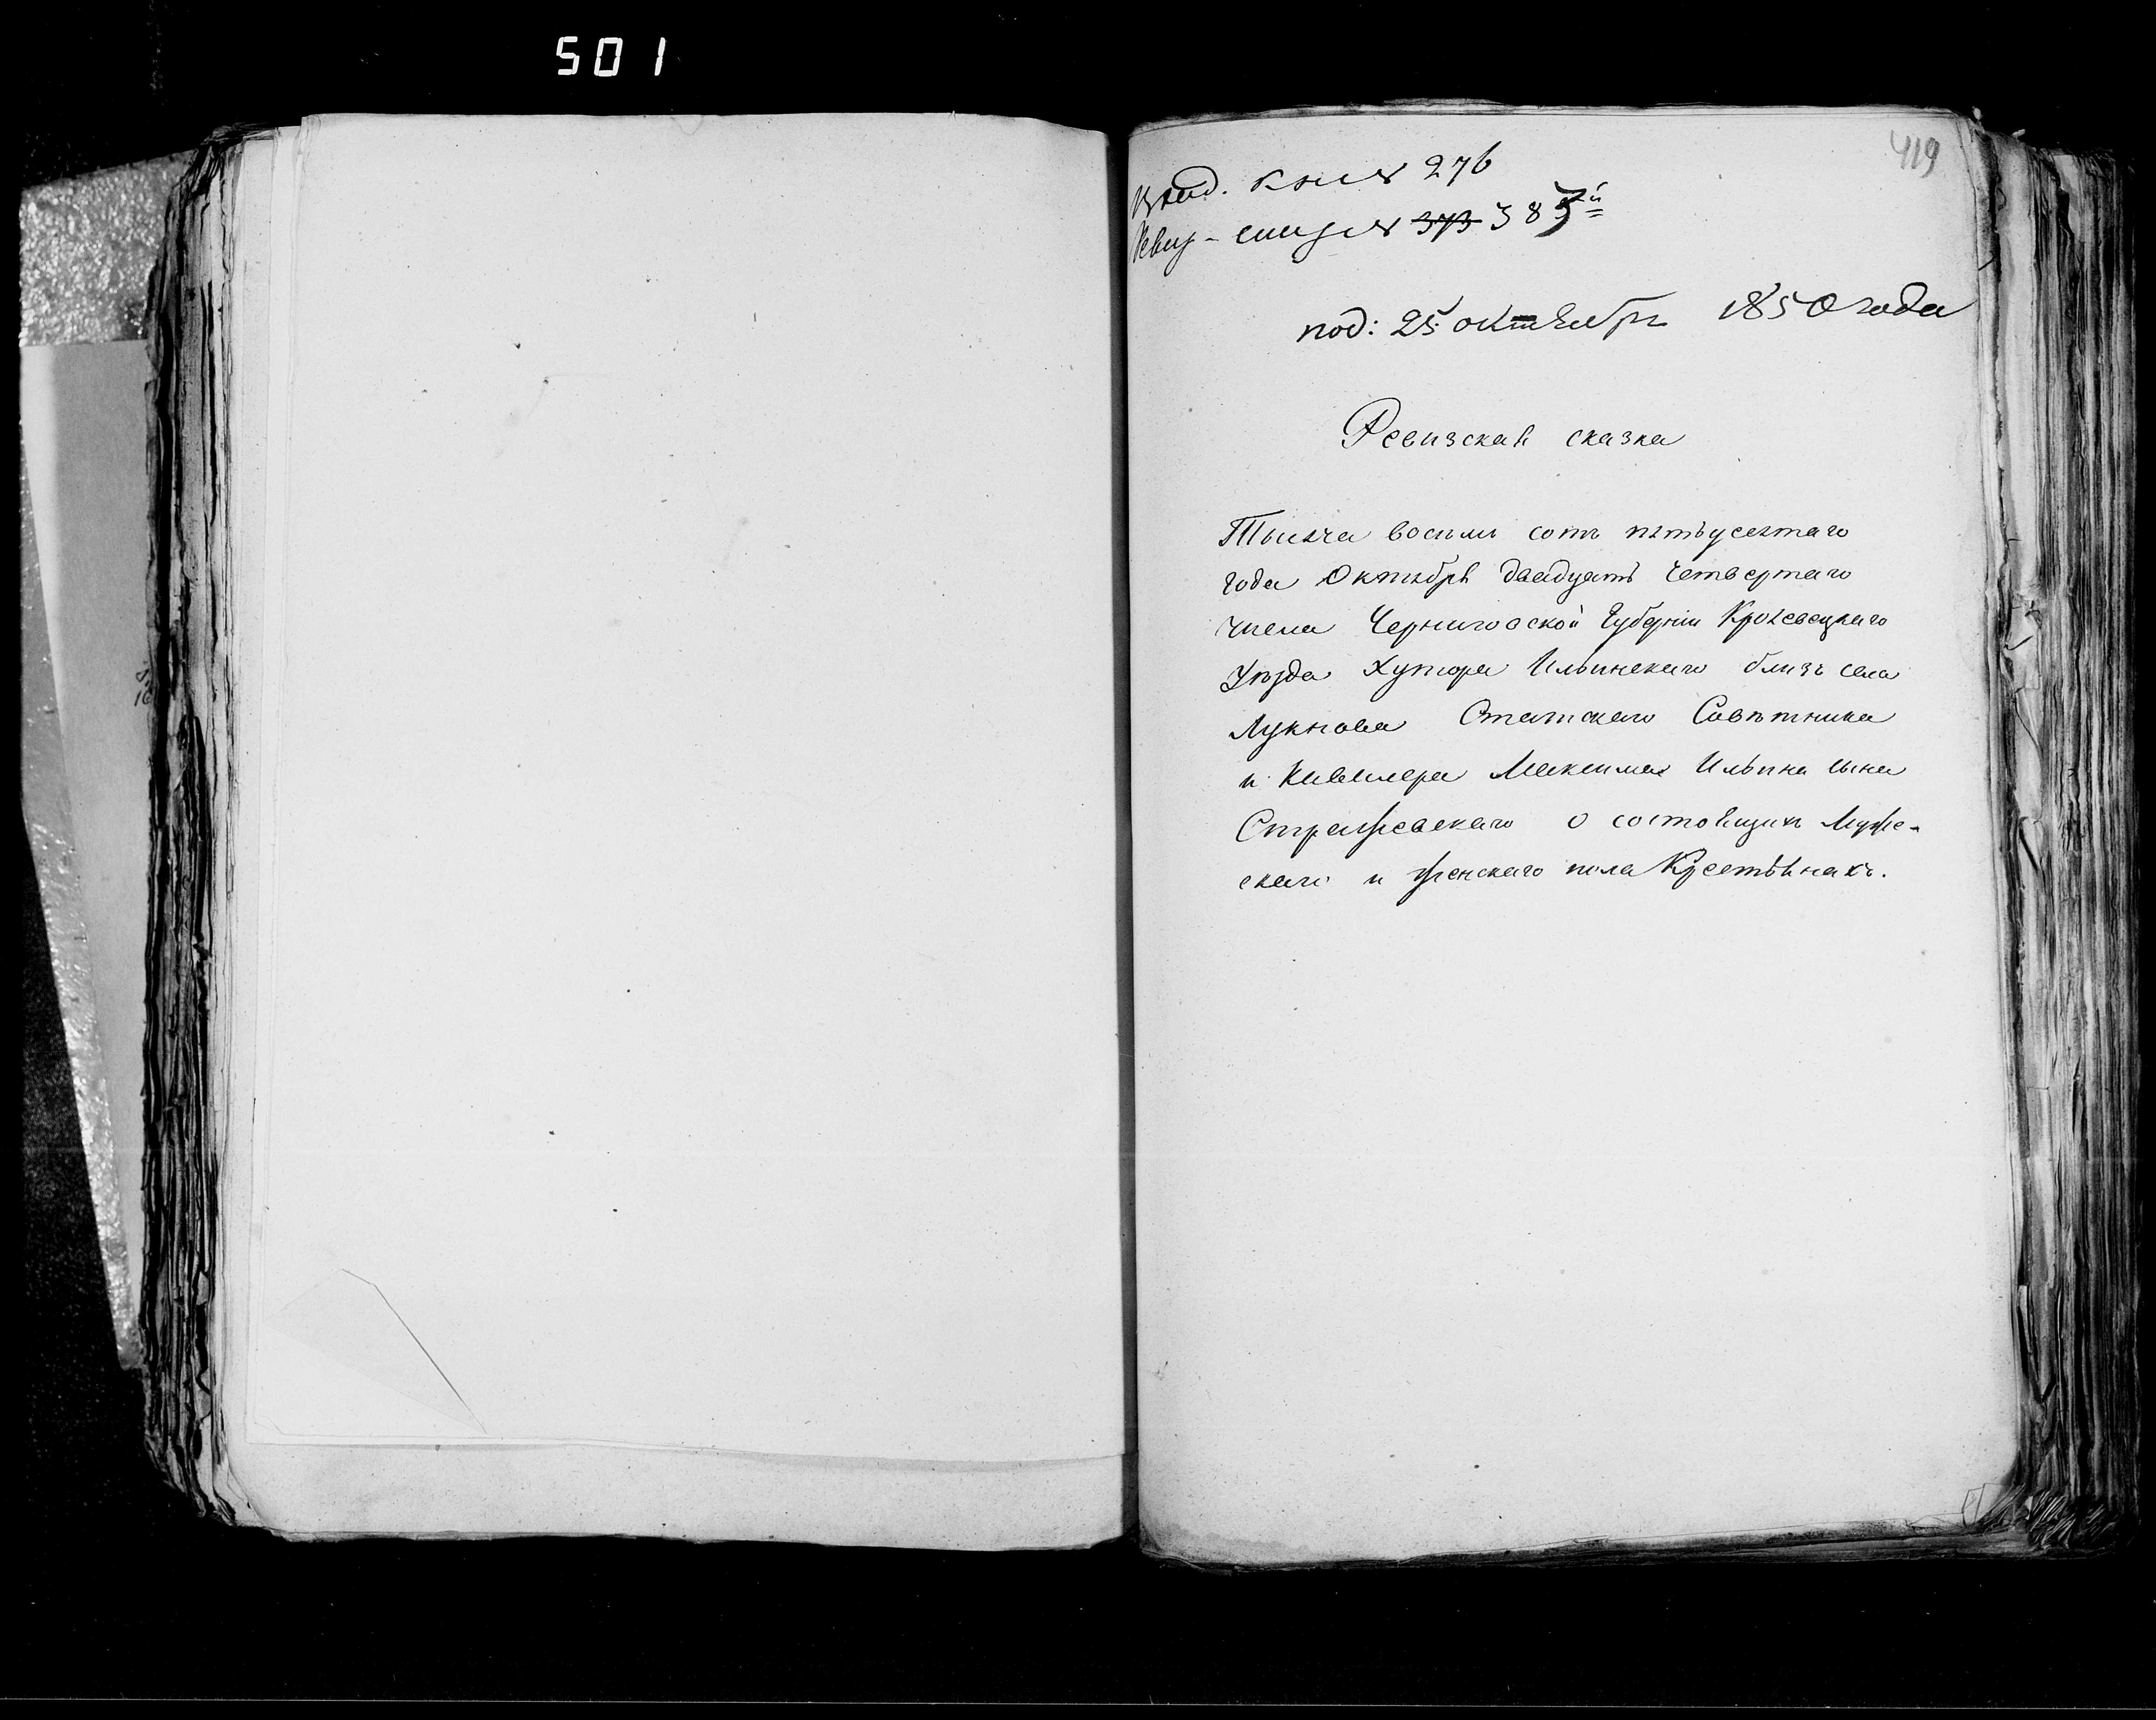 501
419
Вход. книг 276
Ревиз- 373 385й
под: 25 октября 1850 года
Ревизская сказка
Тысяча восемь сотъ пятьдесятаго
года Октября двадцать четвертаго
числа Черниговской Губерніи Кролевецкаго
Уѣзда Хутора Ильинскаго близъ села
Лукнова Статскаго Совѣтника
и Кавалера Максима Ильина сына
Стражевскаго о состоящихъ Муже-
скаго и женскаго пола Крестьянахъ.